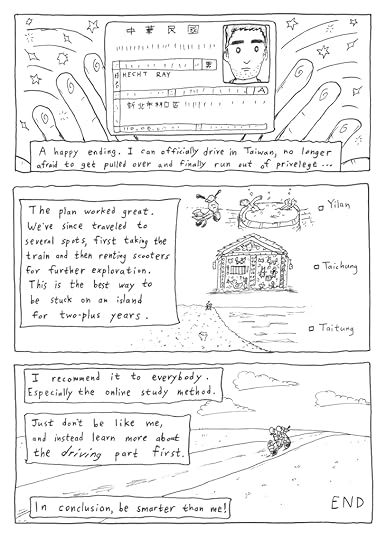 中華民國
男
HECHT RAY
A
新北市林口區
A happy ending. I can officially drive in Taiwan, no longer
afraid to get pulled over and finally run out of privelege...
The plan worked great.
We've since traveled to
several spots, first taking the
train and then renting scooters
for further exploration.
This is the best way to
be stuck on an island
for two-plus years.
Yilan
Taichung
Taitung
I recommend it to everybody.
Especially the online study method.
Just don't be like me,
and instead learn more about
the driving part first.
In conclusion, be smarter than me!
END